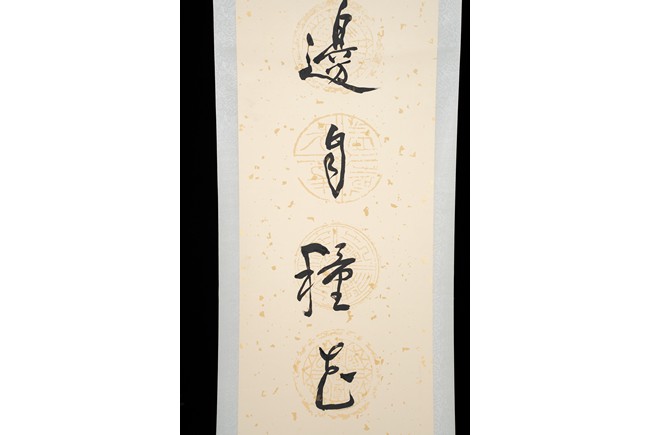 邊自種花